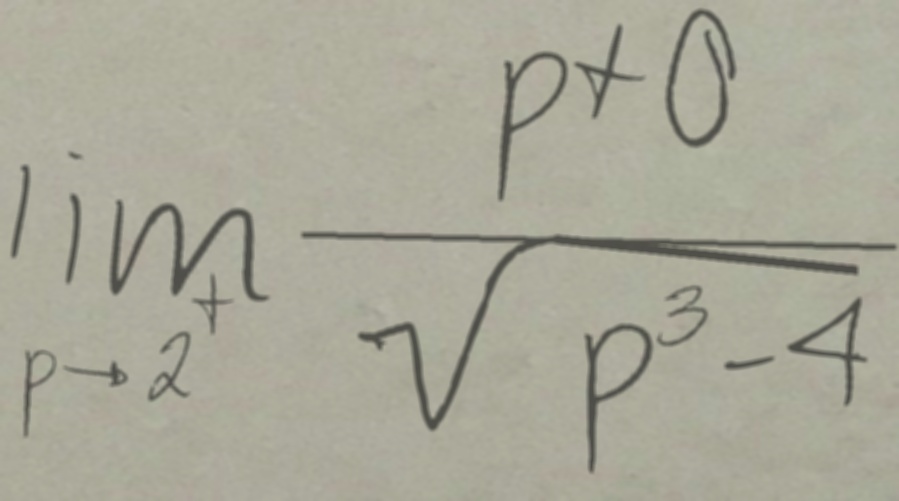 lim_{p \to 2^+} \frac{p+0}{\sqrt{p^3-4}}